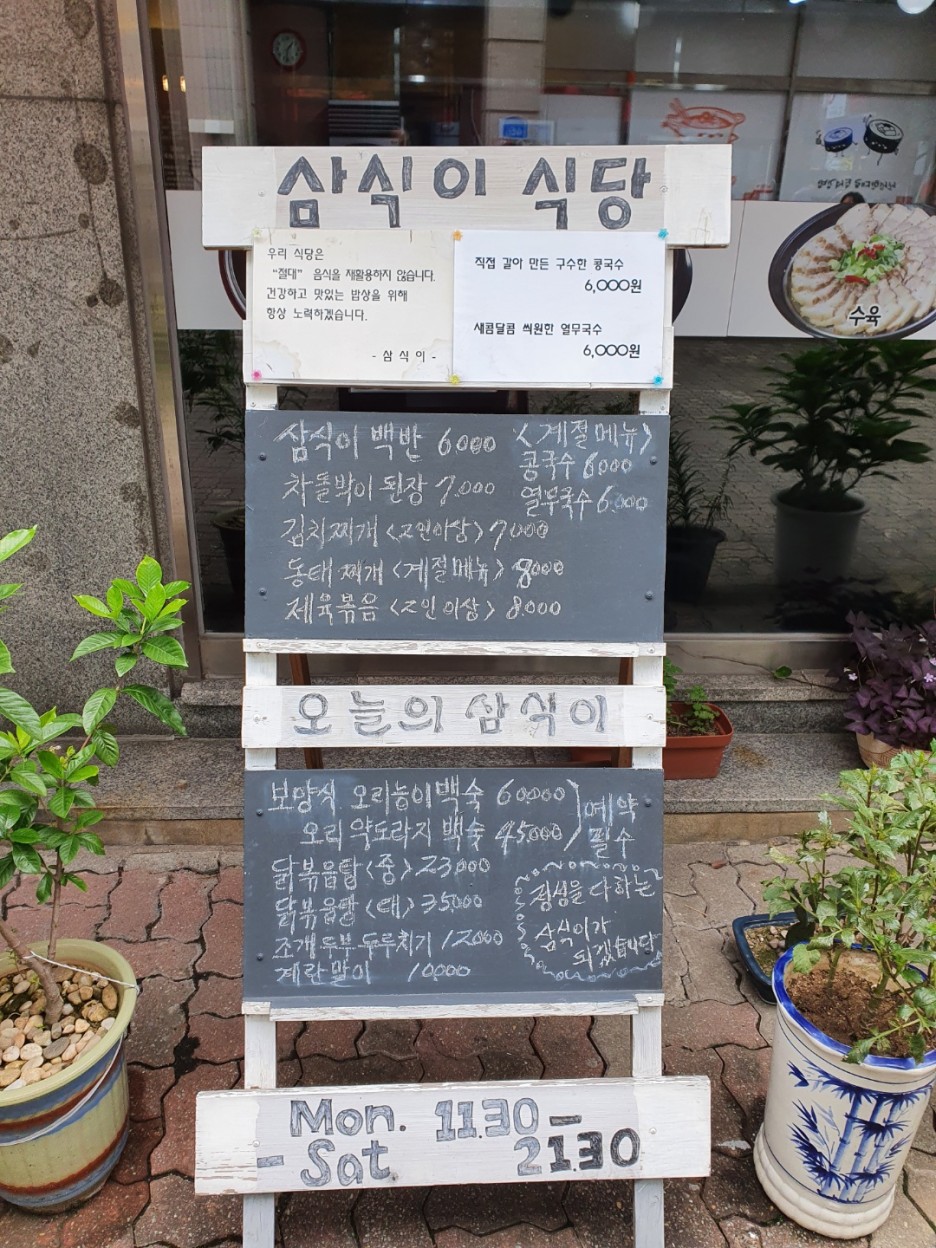 삼식이 식당
우리 식당은
"절대" 음식을 재활용하지 않습니다.
건강하고 맛있는 밥상을 위해
항상 노력하겠습니다.
- 삼 식 이 -
직접 갈아 만든 구수한 콩국수
6,000원
새콤달콤 씩원한 열무국수
6,000원
삼식이 백반 6000
차돌박이 된장 7.000
김치찌개 <2인이상> 7000
동태찌개 <계절메뉴> 8000
제육볶음 <2인이상> 8.000
<계절메뉴>
콩국수 6000
열무국수 6.000
오늘의 삼식이
보양식 오리능이백숙 60,000
오리약도라지 백숙 45.000
예약
필수
닭볶음탕 <중> 23,000
닭볶음탕 <대> 35,000
조개두부두루치기 12000
계란말이 10,000
정성을 다하는
삼식이가
되겠습니다
Mon. 11.30 -
- Sat 21.30
수육